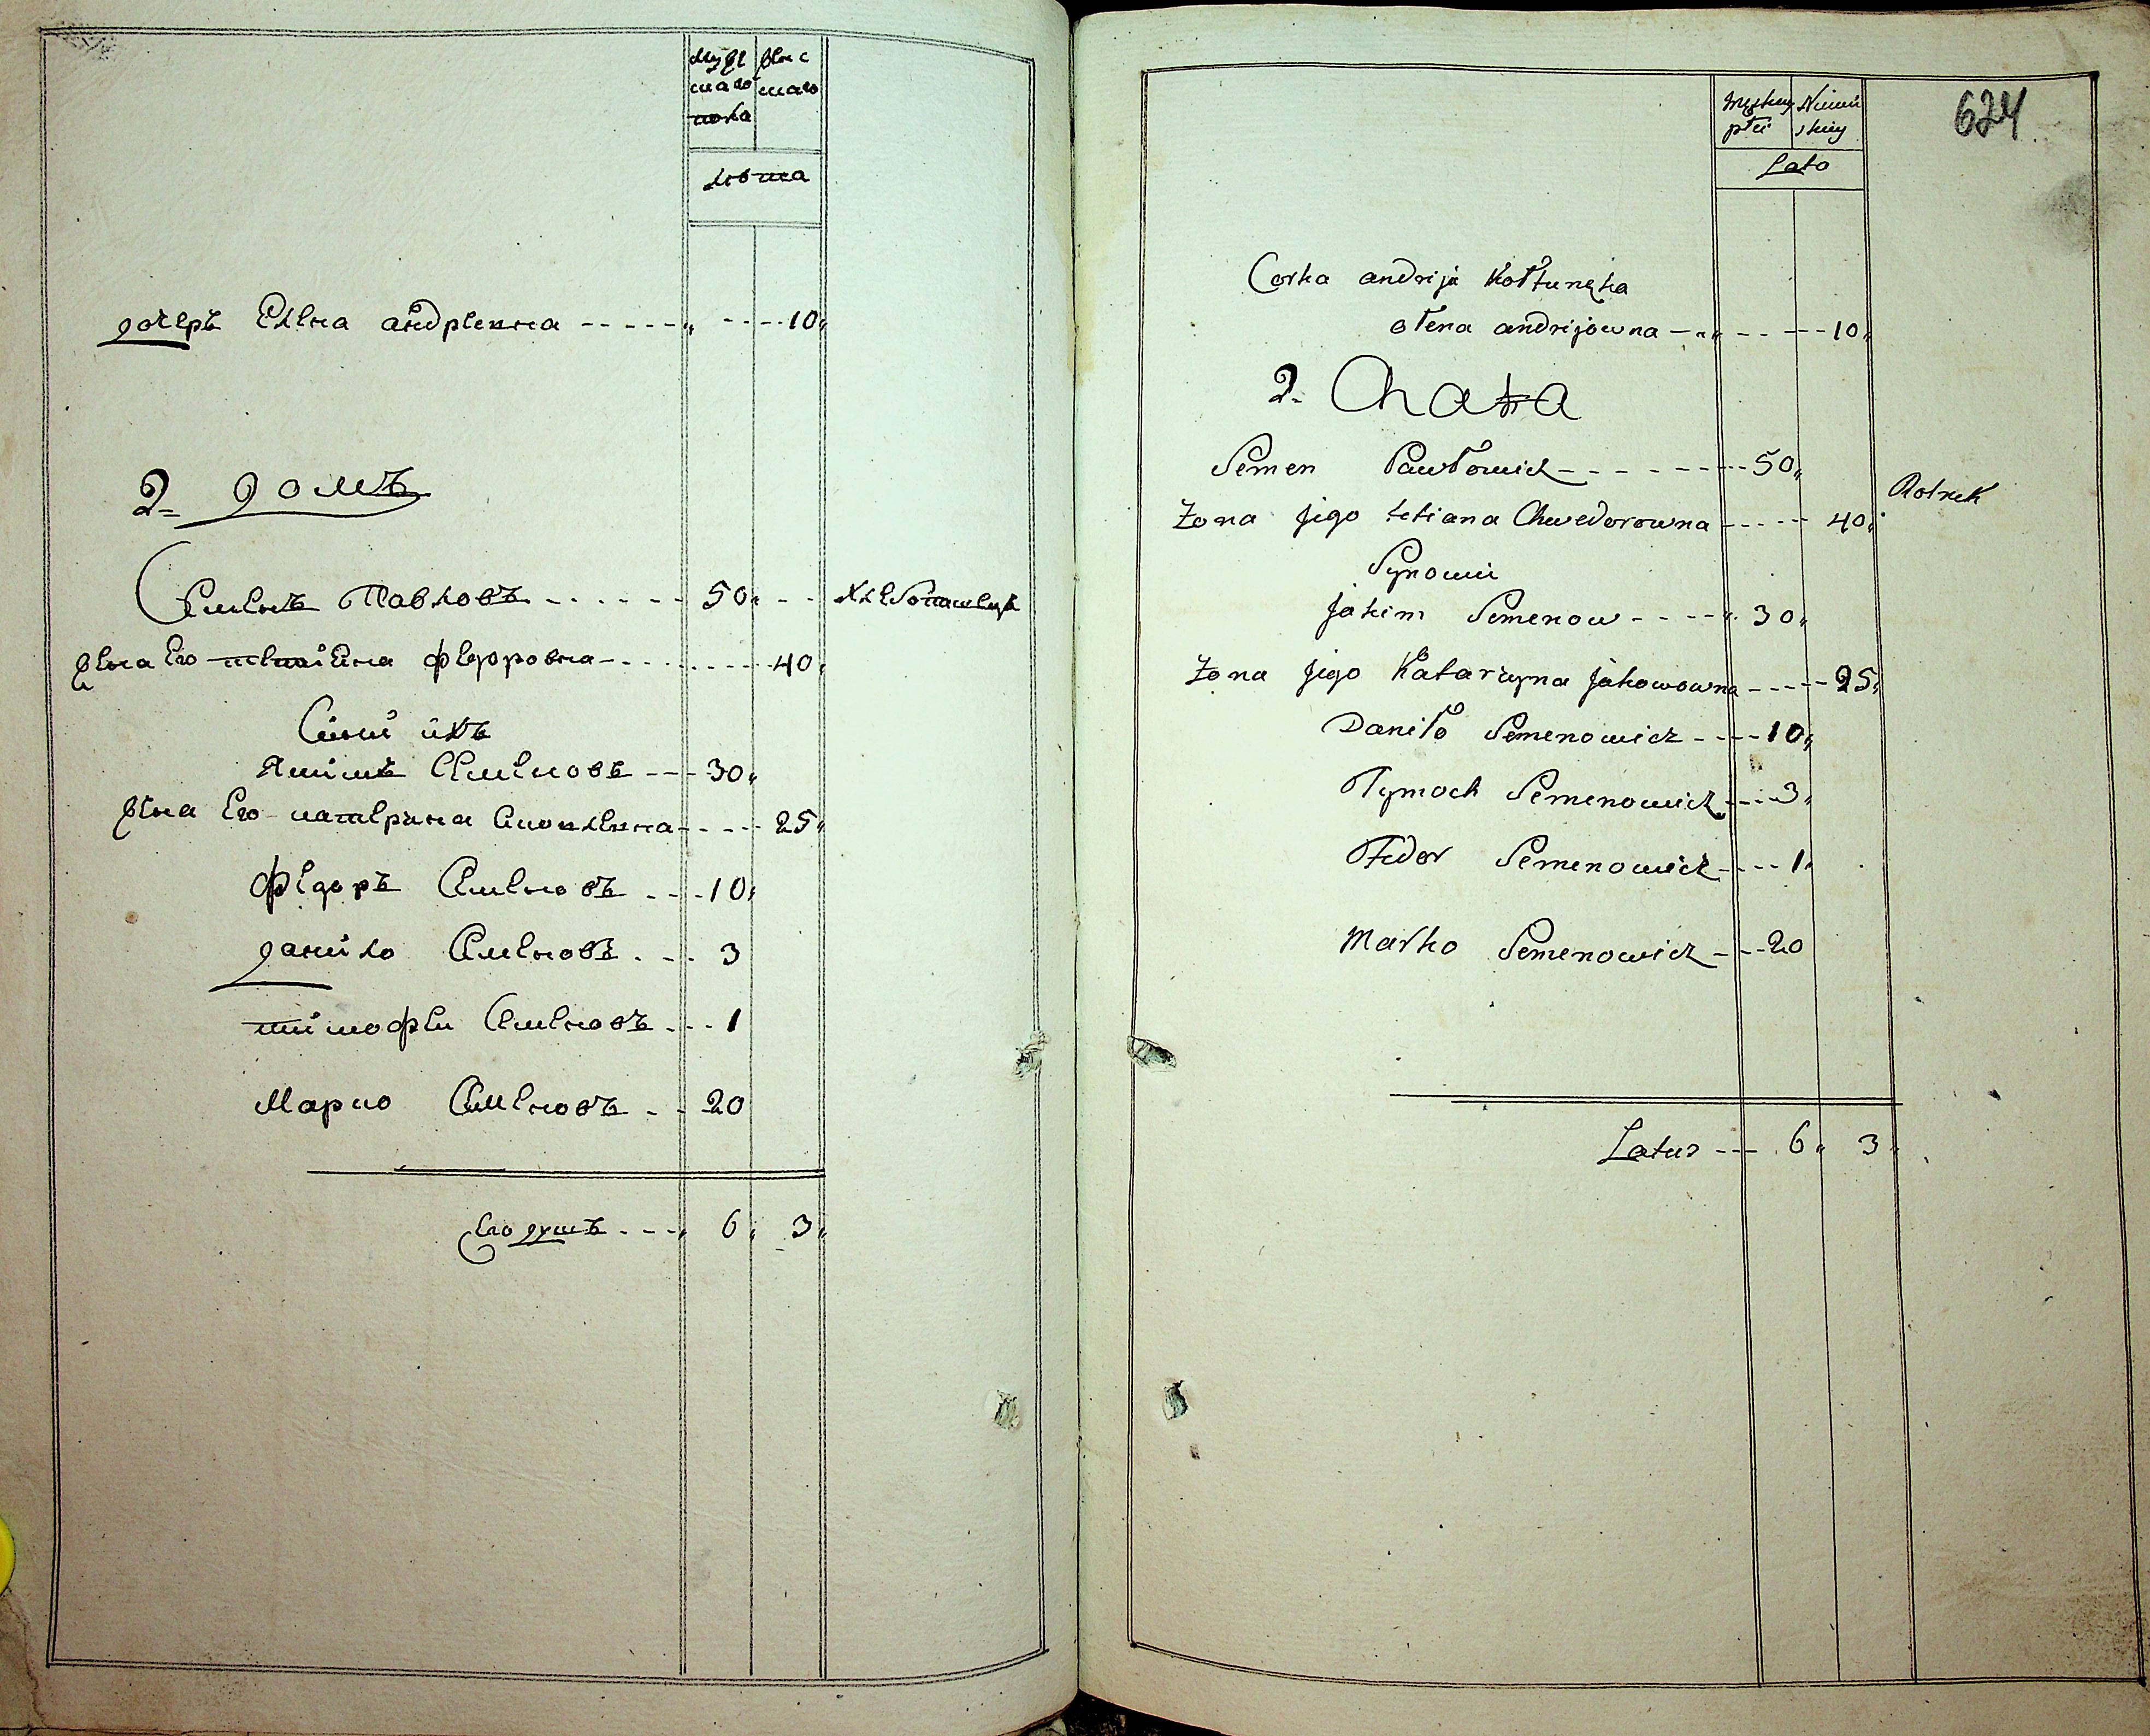 Мужескаго пола
Женскаго
Лѣта
дочерь Елена андреевна ----- " ---- 10 "
2 - домъ
Семенъ Павловъ ------ 50 " -- Хлебопашецъ
жена Его татиана федоровна ------ 40 "
Сини ихъ
Якимъ Семеновъ --- 30 "
жена Его катерина ---- 25 "
федоръ Семеновъ --- 10 "
данило Семеновъ --- 3
тимофеи Семеновъ --- 1
Марко Семеновъ -- 20
Его душъ --- " 6 " 3 "
624
męskiey płei
Lato
Corka andrija Kołtunęka
ołena andrijowna -- " ---- 10 "
2 - Chata
Semen Pawłowicz ------- 50 "
Żona jigo tetiana Chwedorowna ----- 40 "
Rolnik
Synowii
jakim Semenow ---- " 30 "
Żona jigo Katarzyna jakowowna ---- 25 "
Daniło Semenowicz ---- 10 "
Tymoch Semenowicz --- 3 "
Fedor Semenowicz --- 1 "
Marko Semenowicz --- 20
Latus --- 6 " 3 "